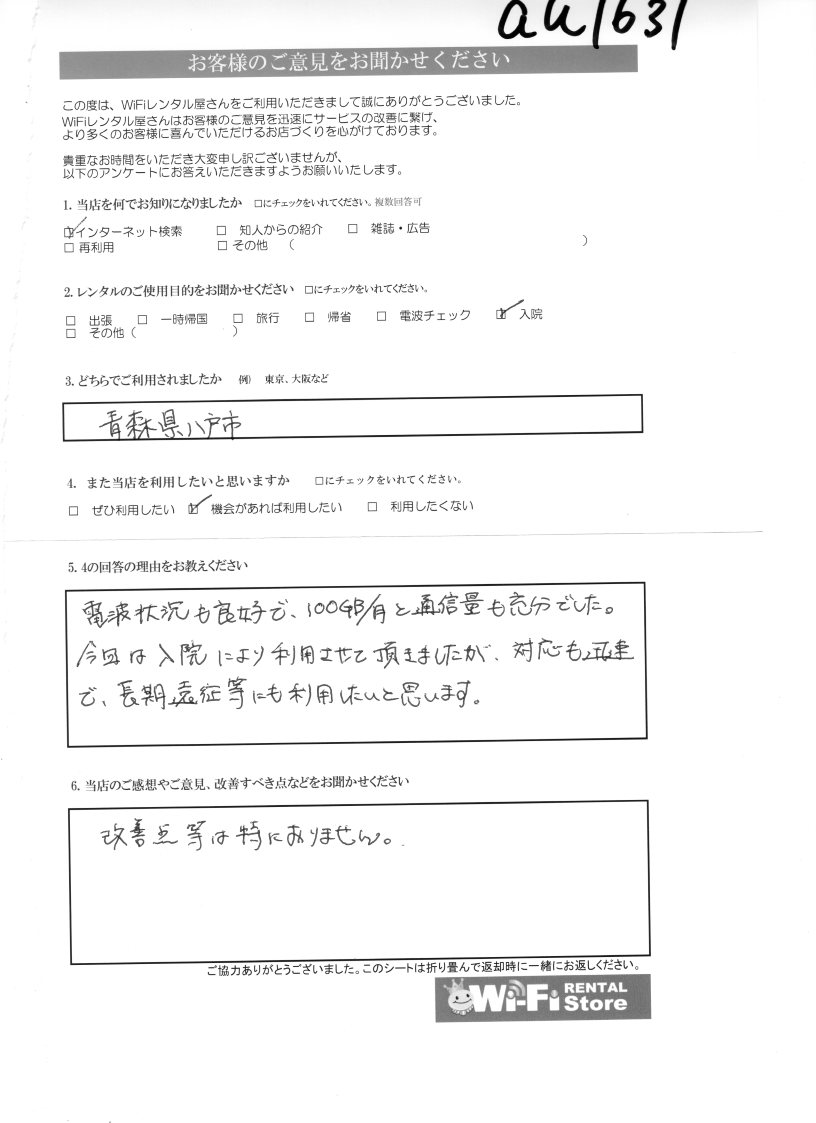 au1631
お客様のご意見をお聞かせください
この度は、WiFiレンタル屋さんをご利用いただきまして誠にありがとうございました。
WiFiレンタル屋さんはお客様のご意見を迅速にサービスの改善に繋げ、
より多くのお客様に喜んでいただけるお店づくりを心がけております。
貴重なお時間をいただき大変申し訳ございませんが、
以下のアンケートにお答えいただきますようお願いいたします。
1. 当店を何でお知りになりましたか □にチェックをいれてください。複数回答可
☑インターネット検索 □ 知人からの紹介 □ 雑誌・広告
□ 再利用 □ その他 （ ）
2. レンタルのご使用目的をお聞かせください □にチェックをいれてください。
□ 出張 □ 一時帰国 □ 旅行 □ 帰省 □ 電波チェック ☑ 入院
□ その他（ ）
3. どちらでご利用されましたか 例） 東京、大阪など
青森県八戸市
4. また当店を利用したいと思いますか □にチェックをいれてください。
□ ぜひ利用したい ☑ 機会があれば利用したい □ 利用したくない
5. 4の回答の理由をお教えください
電波状況も良好で、100GB/月と通信量も充分でした。
今回は入院により利用させて頂きましたが、対応も迅速
で、長期遠征等にも利用したいと思います。
6. 当店のご感想やご意見、改善すべき点などをお聞かせください
改善点等は特にありません。
ご協力ありがとうございました。このシートは折り畳んで返却時に一緒にお返しください。
Wi-Fi RENTAL
Store